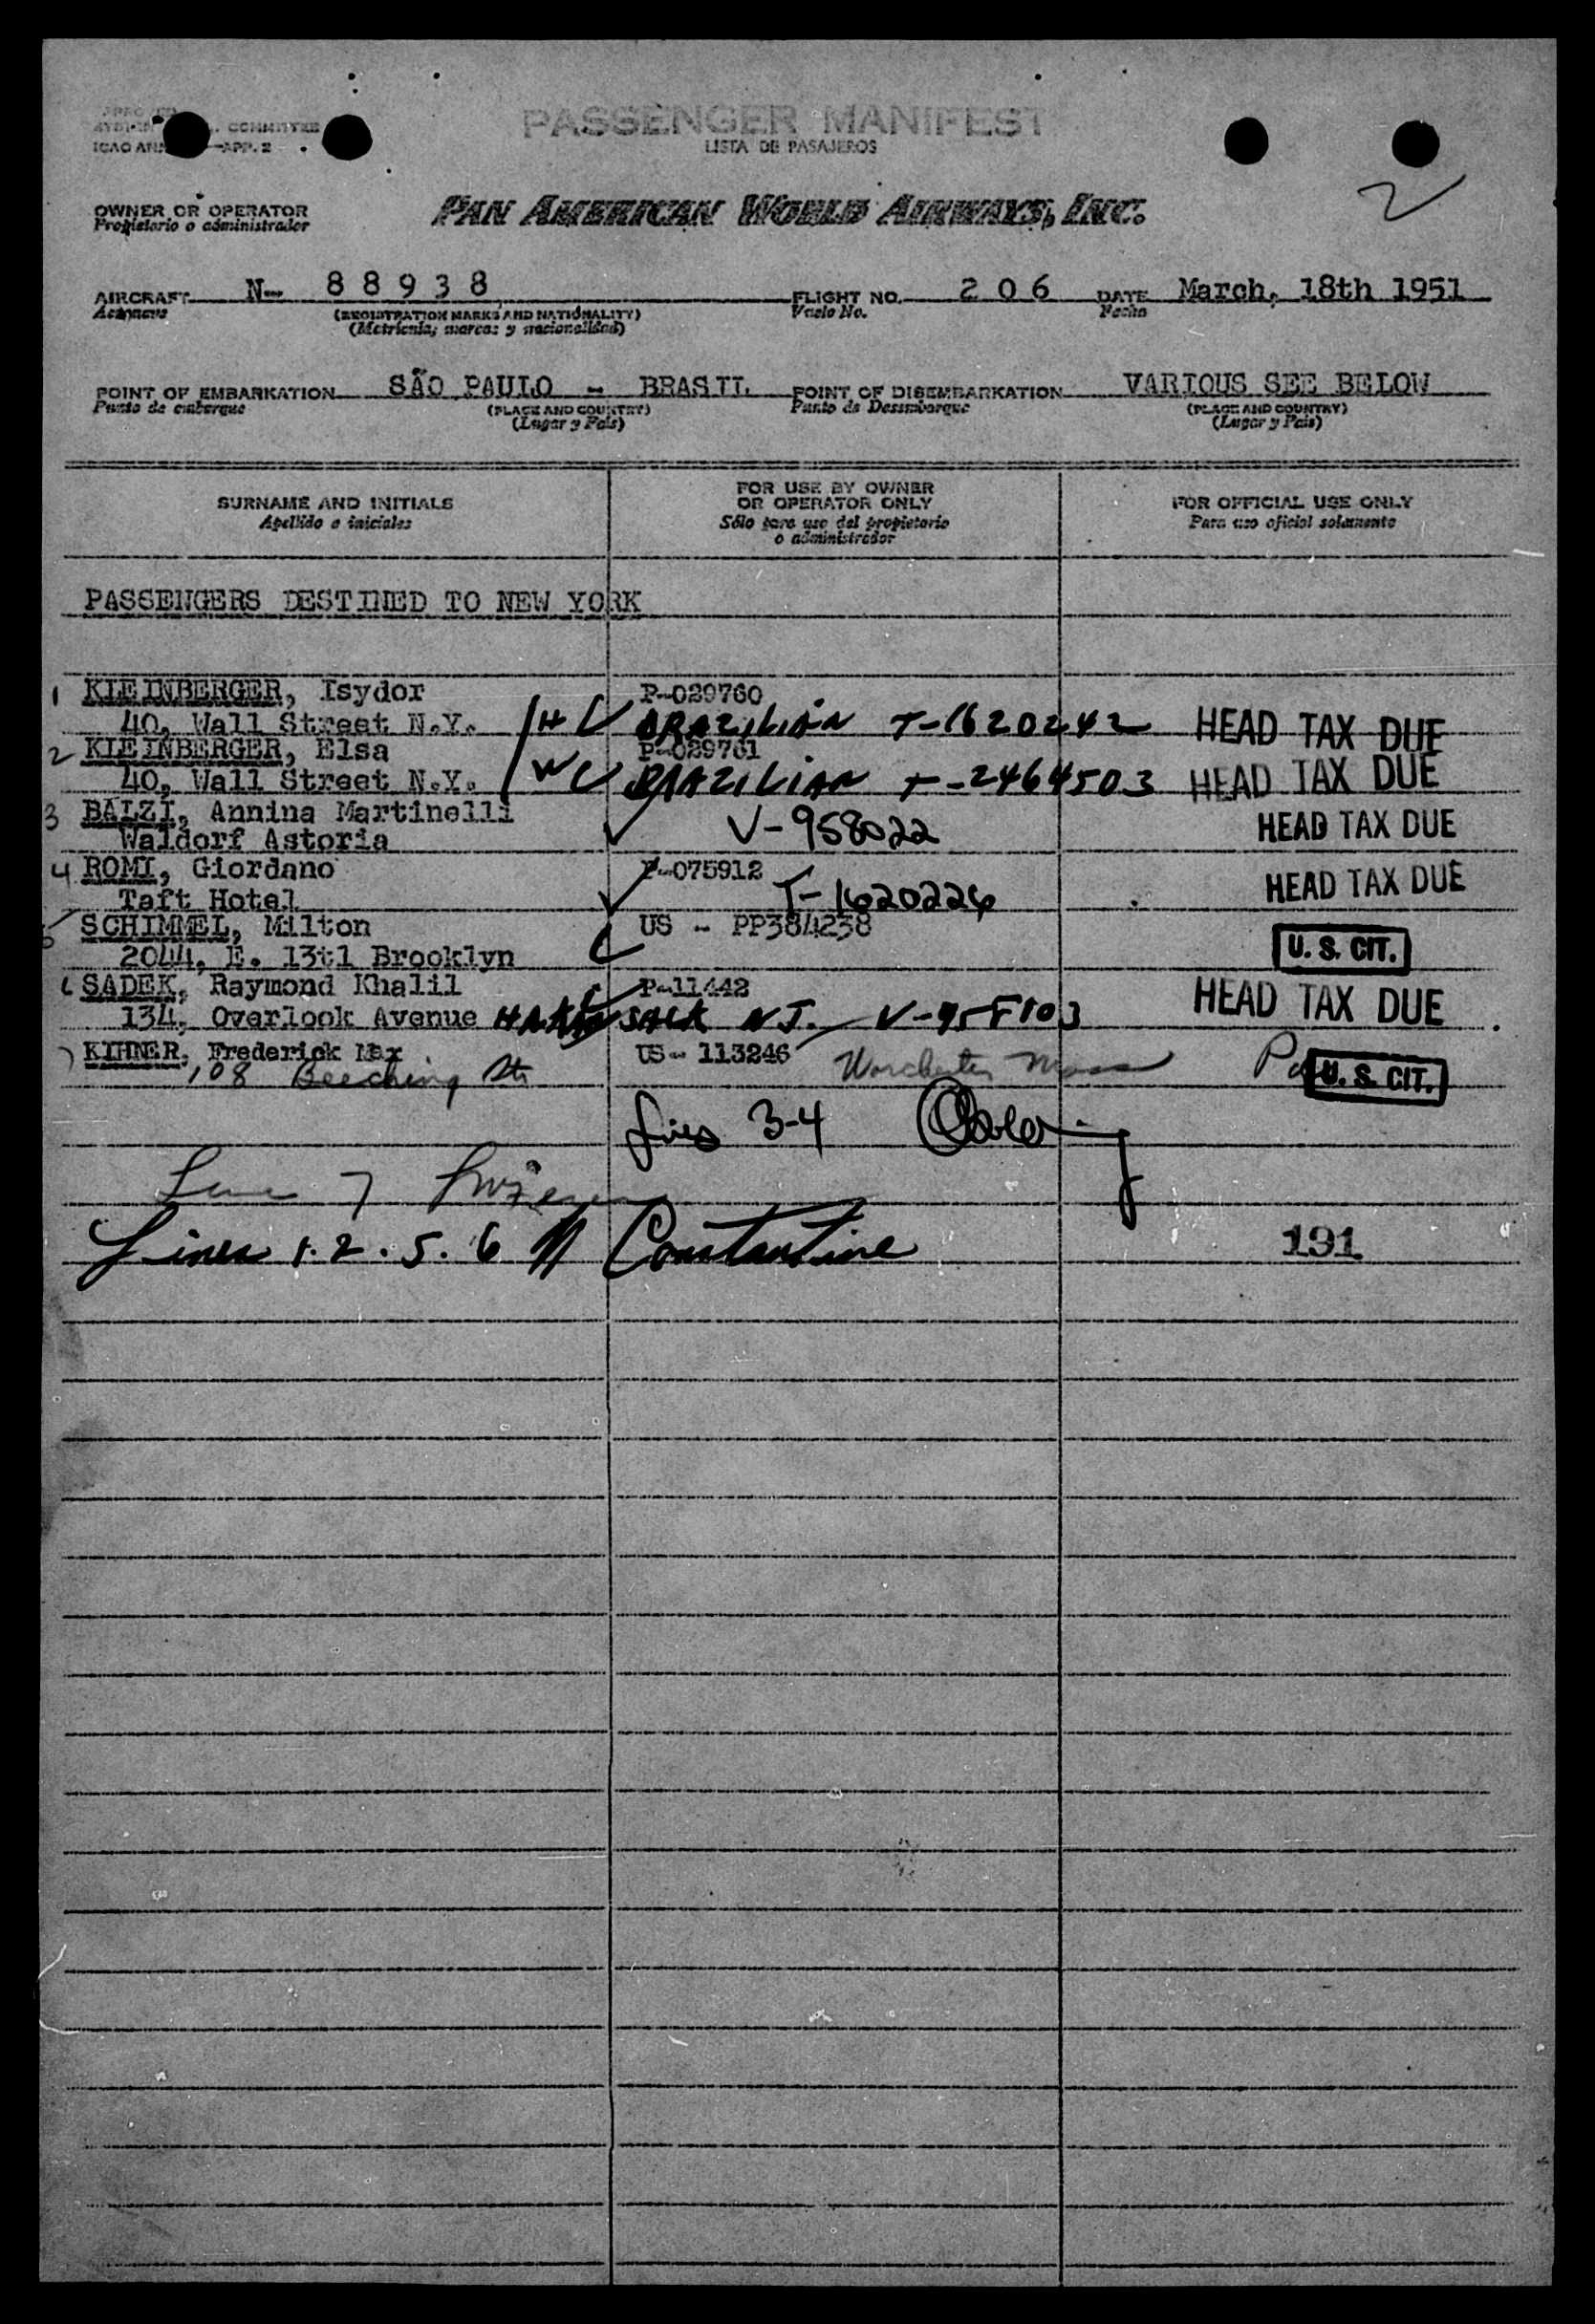 PASSENGER MANIFEST
LISTA DE PASAJEROS
COMMITTEE
APP. 2
2
OWNER OR OPERATOR
Propietario o administrador
PAN AMERICAN WORLD AIRWAYS, INC.
AIRCRAFT N- 8 8 9 3 8 FLIGHT NO. 2 0 6 DATE March, 18th 1951
Aeronave (REGISTRATION MARKS AND NATIONALITY) Vuelo No. Fecha
(Matrícula, marcas y nacionalidad)
POINT OF EMBARKATION SÃO PAULO - BRASIL POINT OF DISEMBARKATION VARIOUS SEE BELOW
Punto de embarque (PLACE AND COUNTRY) Punto de Desembarque (PLACE AND COUNTRY)
(Lugar y País) (Lugar y País)
SURNAME AND INITIALS
Apellido e iniciales
FOR USE BY OWNER
OR OPERATOR ONLY
Sólo para uso del propietario
o administrador
FOR OFFICIAL USE ONLY
Para uso oficial solamente
PASSENGERS DESTINED TO NEW YORK
1 KLEINBERGER, Isydor P-029760
40, Wall Street N.Y. H BRAZILIAN T-1620242 HEAD TAX DUE
2 KLEINBERGER, Elsa P-029761
40, Wall Street N.Y. W BRAZILIAN T-2464503 HEAD TAX DUE
3 BALZI, Annina Martinelli
Waldorf Astoria V-958022 HEAD TAX DUE
4 ROMI, Giordano P-075912
Taft Hotel T-1620226 HEAD TAX DUE
5 SCHIMMEL, Milton US - PP384238
2044, E. 13tl Brooklyn U. S. CIT.
6 SADEK, Raymond Khalil P-11442
134, Overlook Avenue N.J. HEAD TAX DUE
7 KIHNER, Frederick Max US- 113246 Worchester Mass U. S. CIT.
108 Beeching St
Lines 3-4
Line 7
Lines 1. 2. 5. 6 Constantine
191